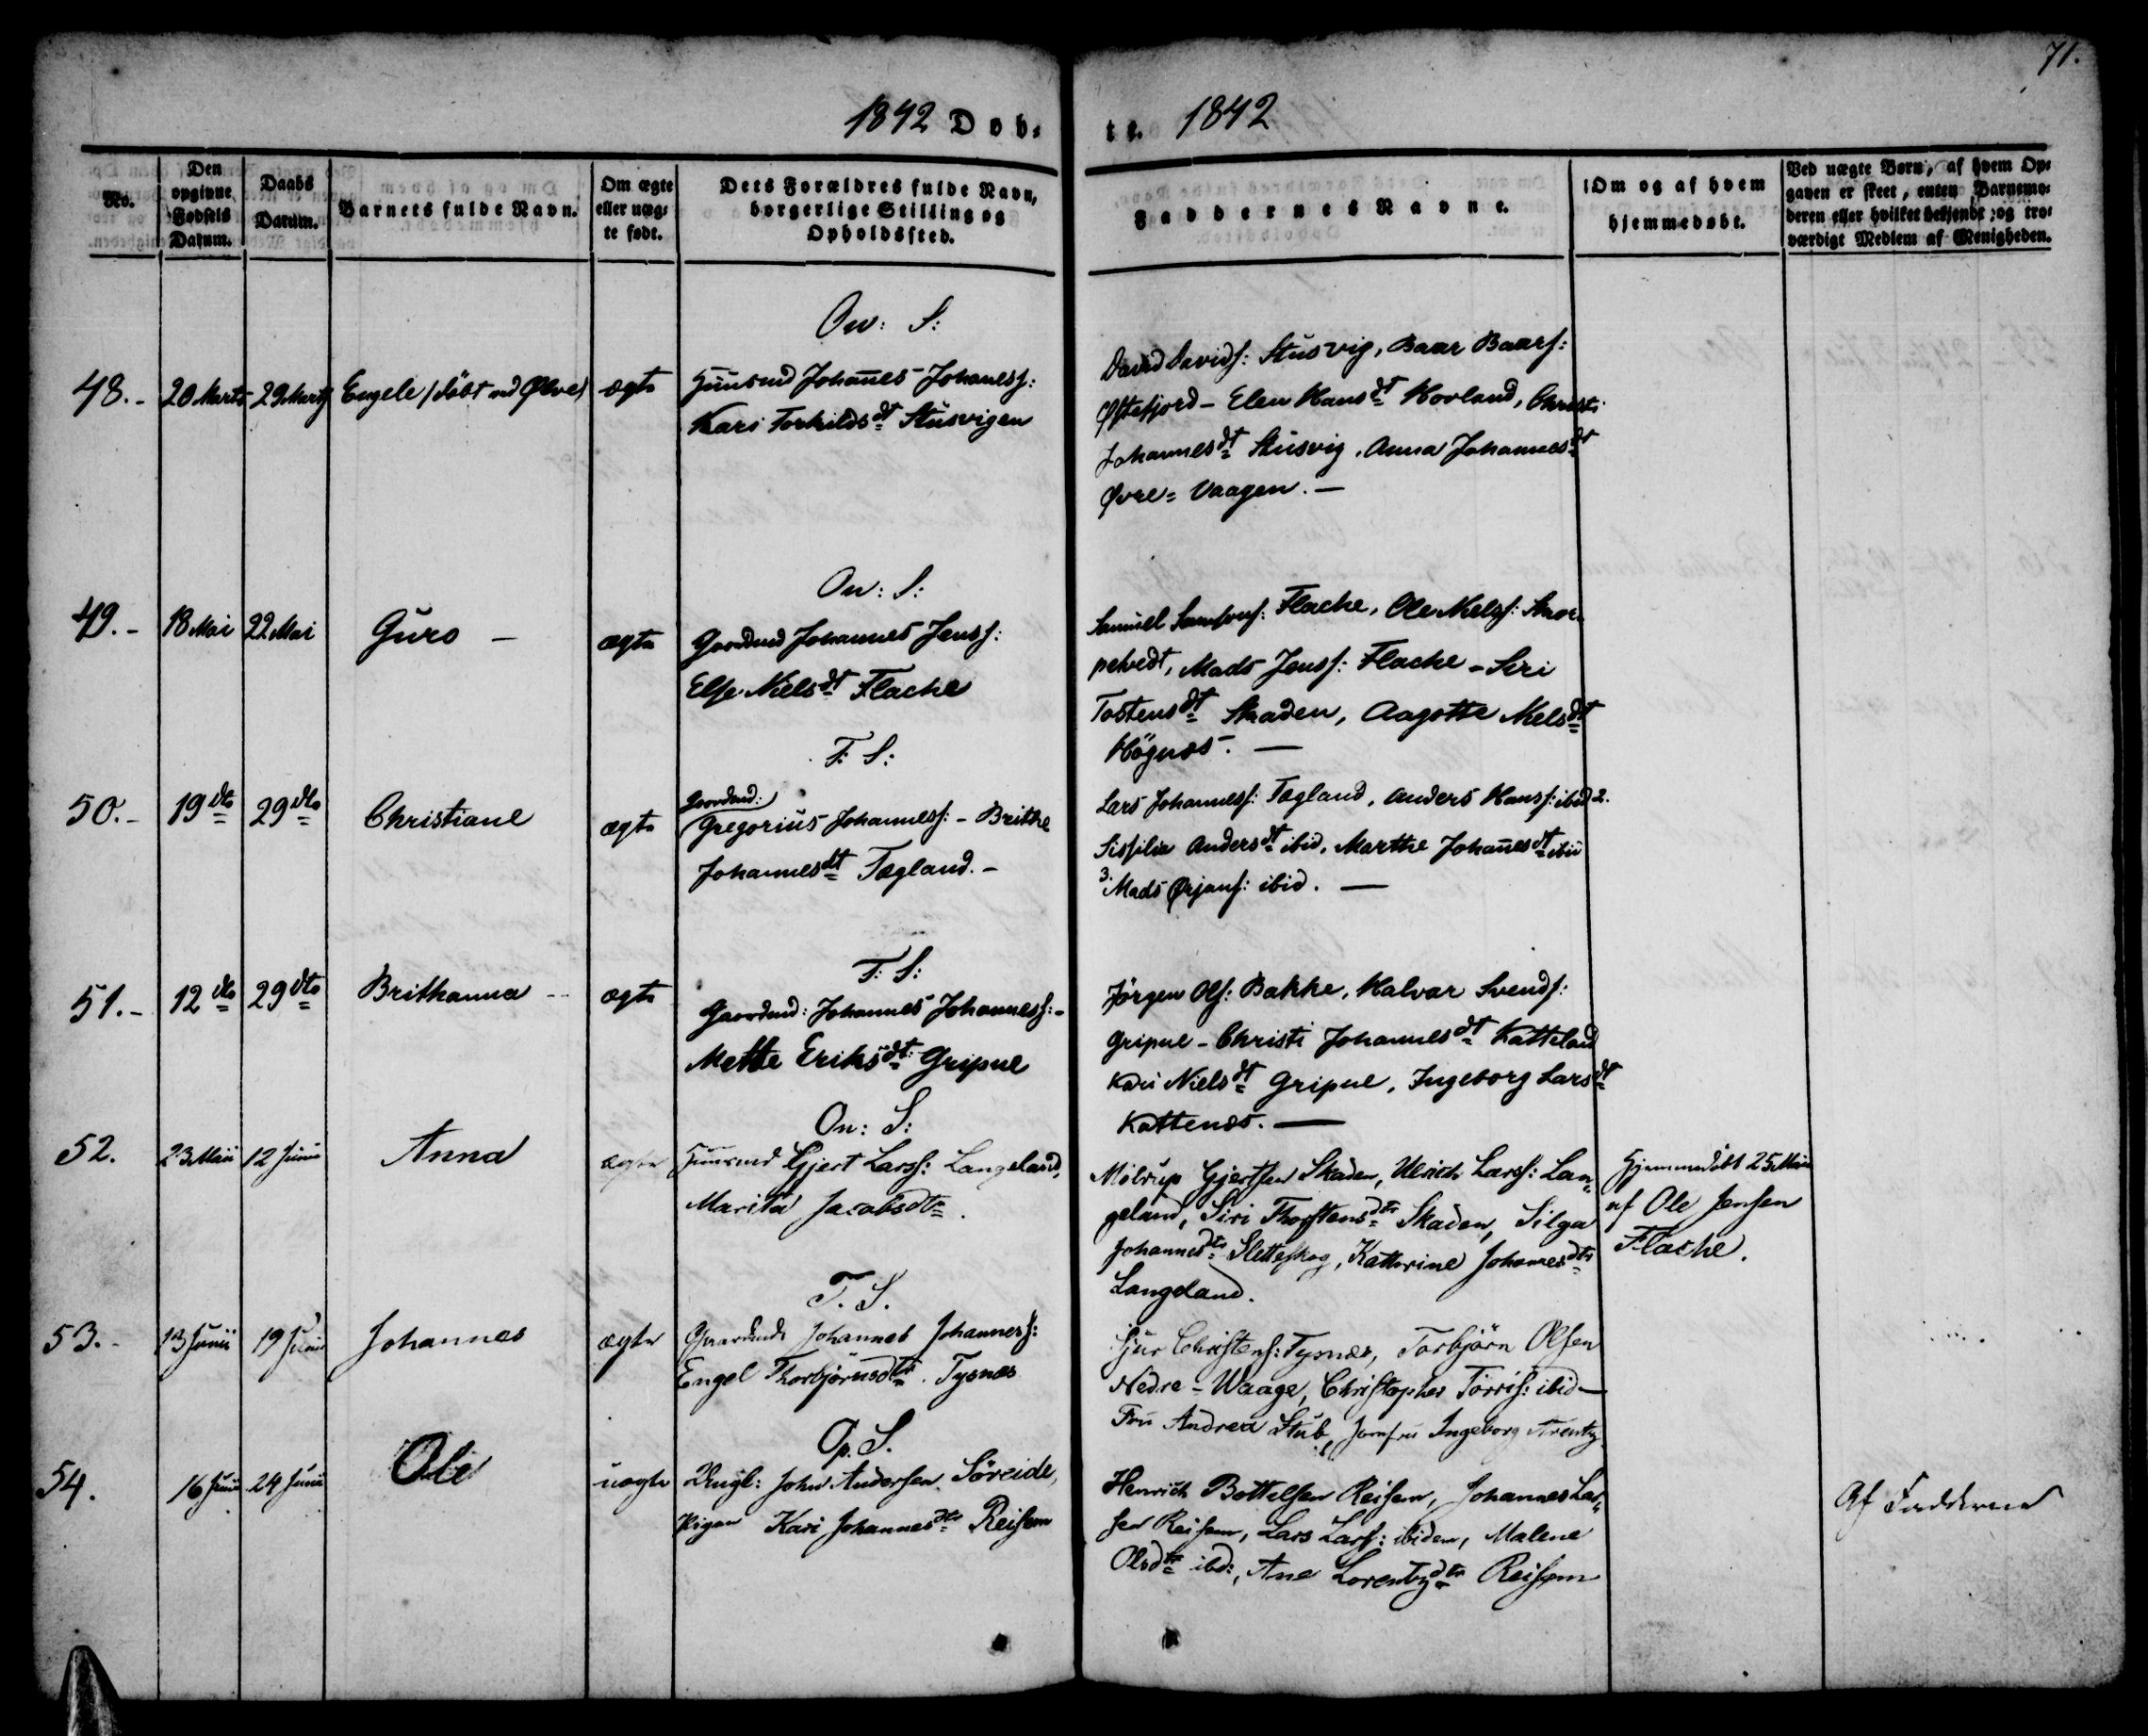 71.
1842 Døb-
te. 1842
No.
Den opgivne Fødsels Datum.
Daabs Datum.
Barnets fulde Navn.
Om ægte eller uæg- te født.
Dets Forældres fulde Navn, borgerlige Stilling og Opholdssted.
Faddernes Navne.
Om og af hvem hjemmedøbt.
Ved uægte Børn, af hvem Op- gaven er skeet, enten Barnemo- deren eller hvilket bekjendt og tro- værdigt Medlem af Menigheden.
On: S:
48.- 20 Marts 29 Marts Engele /döbt ved Ølve/ ægte Huusmd Johañes Johaness:
Kari Torkildsdt Stusvigen
David Davids: Stusvig, Baar Baars:
Øftefjord - Elen Hansdt Hovland, Christi
Johannesdt Stusvig, Anna Johannesdt
Øvre= Vaagen. —
On: S:
49.- 18 Mai 22 Mai Guro - ægte Gaardmd Johannes Jenss:
Else Nielsdt Flache
Samuel Flache, Ole Nielss:
Mads Jenss: Flache - Siri
Tostensdt Skaden, Aagotte Nielsdt
Högnæs. —
F. S:
50.- 19 dto 29 dto Christiane ægte Gaardmd:
Gregorius Johanness: - Brithe
Johannesdt Tægland. -
Lars Johanness: Tægland, Anders Hanss: ibid 2.
Sissilia Andersdt ibid, Marthe Johañesdt ibid
3. Mads Ørjans: ibid. —
T: S:
51.- 12 dto 29 dto Brithanna - ægte Gaardmd: Johannes Johanness: -
Mette Eriksdt Gripne
Jörgen Ols: Bakke, Halvar Svends:
Gripne - Christi Johannesdt Katteland
Kari Nielsdt Gripne, Ingeborg Larsdt
Kattenæs. —
On: S:
52. 23 Maii 12 Junii Anna ægte Huusmd Gjert Larss: Langeland,
Marita Jacobsdtr.
Gjertsen Skaden, Ulrich Larss: Lan-
geland, Siri Thorstensdtr Skaden, Silga
Johannesdtr Sletteskog, Kathrine Johannesdtr
Langeland.
Hjemmedöbt 25 Maii
af Ole Jensen
Flache.
T. S.
53.- 13 Junii 19 Junii Johannes ægte Gaardmd: Johannes Johanness:
Engel Thorbjörnsdtr. Tysnæs
Sjur Christens: Tysnæs, Torbjörn Olsen
Nedre - Waage, Christopher Törris: ibid -
Fru Andrea Stub, Jomfru Ingeborg Arentz
Op. S.
54. 16 Junii 24 Junii Ole uægte Ungk: John Andersen Söreide,
Pigen Kari Johannesdtr Reisem
Henrich Bottelsen Reisem, Johannes Lar-
sen Reisem, Lars Larss: ibidem, Malene
Olsdtr ibd:, Ane Lorentzdtr Reisem
Af Fadderne